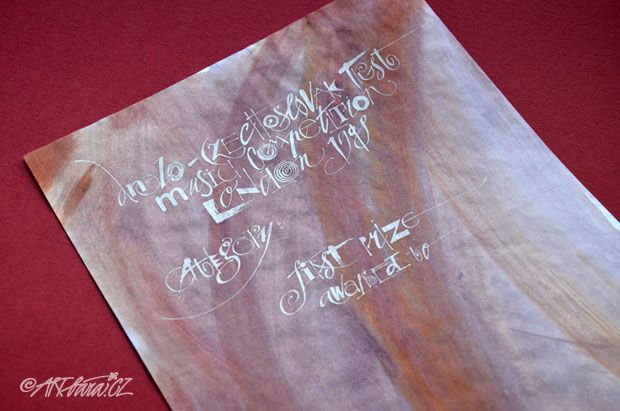 Anglo-Czechoslovak Trust
Music Competition
London 1998
Category:
First Prize
awarded to
©ARTbara.CZ